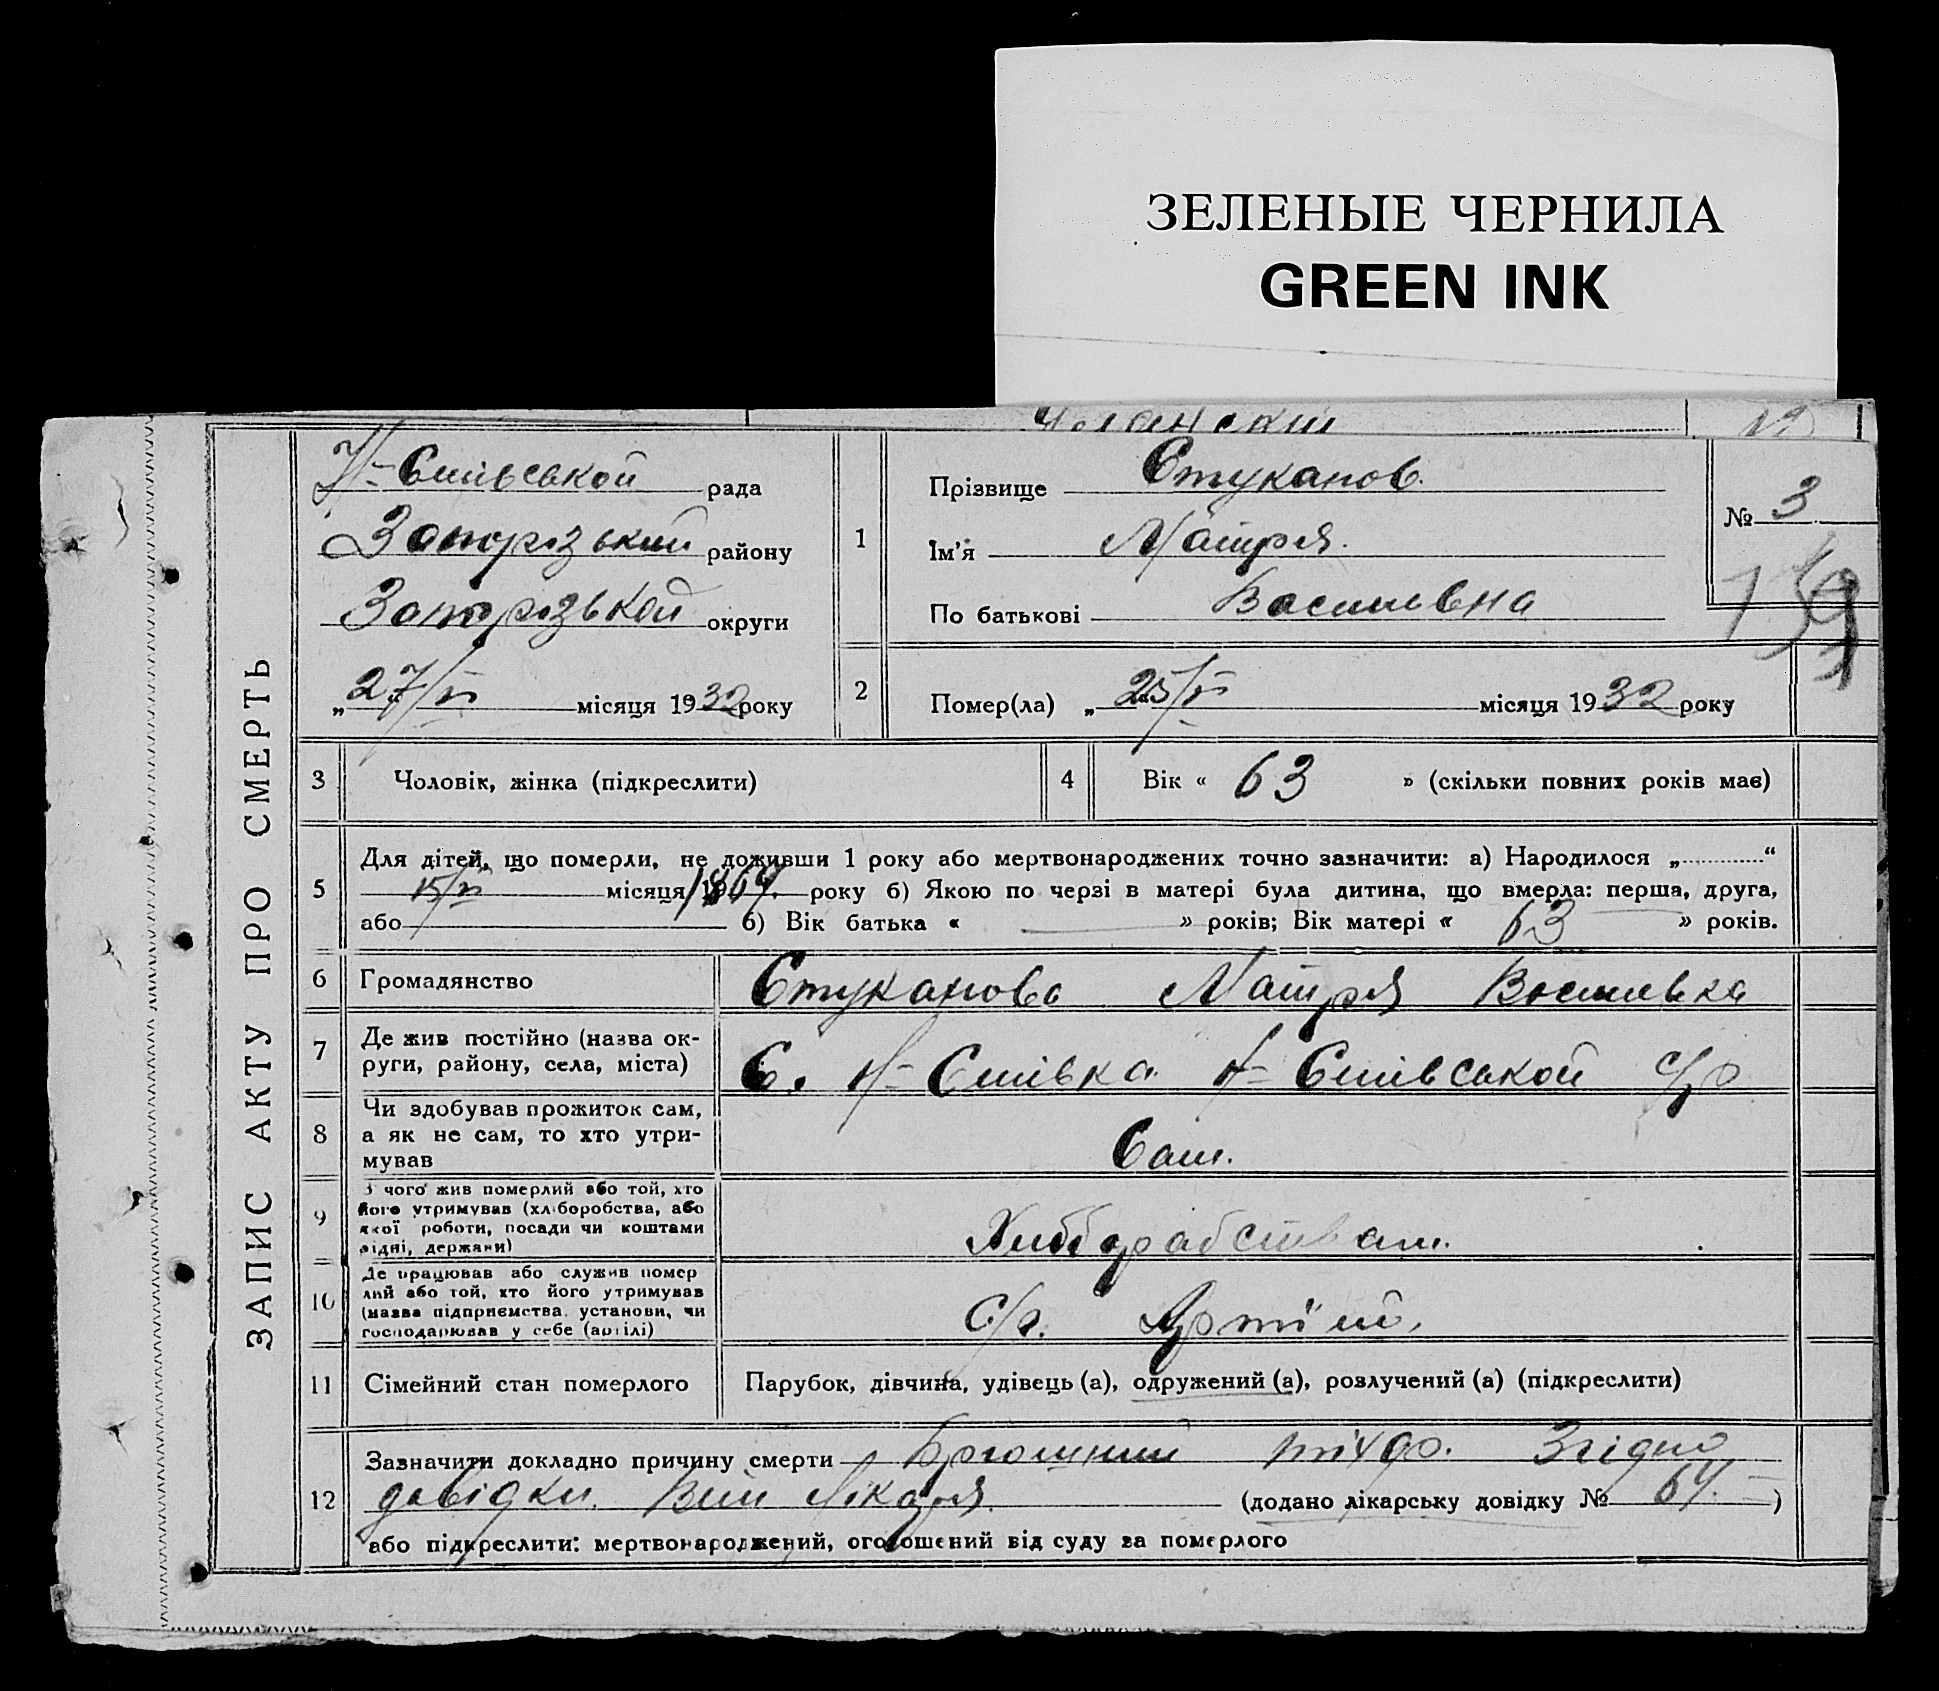 ЗЕЛЕНЫЕ ЧЕРНИЛА
GREEN INK
ЗАПИС АКТУ ПРО СМЕРТЬ
рада
Запорізький району
Запорізькой округи
„27/VI місяця 1932 року
1
Прізвище Стуканов.
Ім'я Матря.
По батькові Василевна
№ 3
2
Помер(ла) „25/VI місяця 1932 року
3
Чоловік, жінка (підкреслити)
4
Вік « 63 » (скільки повних років має)
5
Для дітей, що померли, не доживши 1 року або мертвонароджених точно зазначити: а) Народилося „ “
місяця 1869. року б) Якою по черзі в матері була дитина, що вмерла: перша, друга,
або б) Вік батька « » років; Вік матері « 63 » років.
6
Громадянство
Стуканова Матря
7
Де жив постійно (назва ок-
руги, району, села, міста)
С. Н-
с/р
8
Чи здобував прожиток сам,
а як не сам, то хто утри-
мував
Сам.
9
З чого жив померлий або той, хто
його утримував (хліборобства, або
якої роботи, посади чи коштами
рідні, держави)
10
Де працював або служив помер
лий або той, хто його утримував
(назва підприємства, установи, чи
господарював у себе (артілі)
С/г. Артіли.
11
Сімейний стан померлого
Парубок, дівчина, удівець (а), одружений (а), розлучений (а) (підкреслити)
12
Зазначити докладно причину смерти Брюшний тіхво. Згідно
довідки. лікаря. (додано лікарську довідку № 64. )
або підкреслити: мертвонароджений, оголошений від суду за померлого